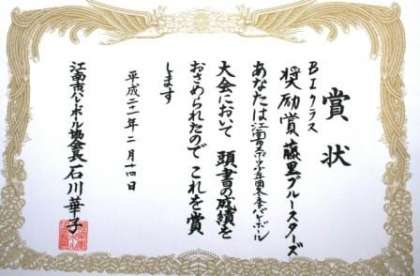 賞状
BIクラス
奨励賞 藤里ブルースターズ
あなたは江南市
バレーボール
大会において 頭書の成績を
おさめられたので これを賞
します
平成二十一年二月十四日
江南市バレーボール協会長 石川華子